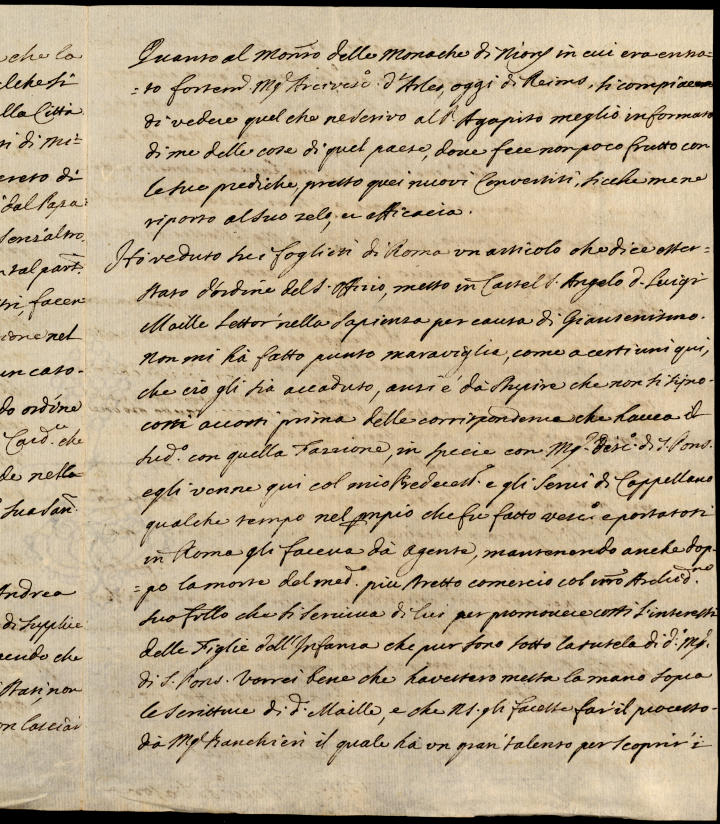 che la
elche si
lla Città
ri di mi=
ereto di
dal Papa
senz'altro
tal part.
tri, facen
ione nel
un caso.
do ordine
Card.le che
de nella
Sua San.
Andrea
di supplic
cendo che
Stati, non
on lasciar
Quanto al Mon.ro delle Monache di Niort in cui era entra=
=to fortem.e Mg.r Arcivesc.o d'Arles, oggi di Reims, si compiacera
di vedere quel che ne scrivo al P. Agapito meglio informato
di me delle cose di quel paese, dove fece non poco frutto con
le sue prediche, presso quei nuovi Convertiti, sicche me ne
riporto al suo zelo, et efficacia.
Hò veduto sui foglietti di Roma un articolo che dice esser=
stato d'ordine del S. Offizio, messo in Castel S. Angelo d. Luigi
Maille Lettor nella Sapienza per causa di Giansenismo.
Non mi hà fatto punto maraviglia, come a certi uni qui,
che ciò gli sia accaduto, anzi è dà stupire che non si siino
cosi accorti prima delle corrispondenze che havea il
sud.o con quella Fazzione, in specie con Mg.r Vesc.o di S. Pons.
egli venne qui col mio Predecess.e e gli servì di Cappellano
qualche tempo nel pnpio che fù fatto vesc.o e portatosi
in Roma gli faceva dà Agente, mantenendo anche dop=
=po la morte del med.o più stretto comercio col
suo frllo che si serviva di lui per promovere costì l'interessi
delle Figlie dell'Infanza che pur sono sotto la tutela di d. Mg.r
di S. Pons. Vorrei bene che havessero messa la mano sopra
le scritture di d. Maille, e che NS. gli facesse far il processo
dà Mg.r Banchieri il quale hà un gran talento per scoprir i